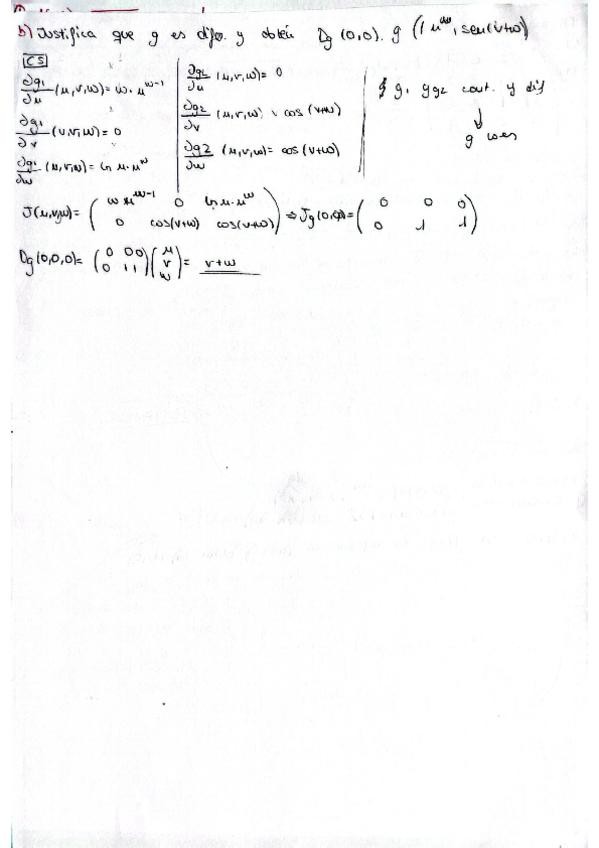 b) Justifica que g es dif. y obtén Dg (0,0). g ( u^w, sen(v+w)
CS
∂g1/∂u (u,v,w) = w · u^(w-1)
∂g1/∂v (u,v,w) = 0
∂g1/∂w (u,v,w) = Ln u · u^w
∂g2/∂u (u,v,w) = 0
∂g2/∂v (u,v,w) cos (v+w)
∂g2/∂w (u,v,w) = cos (v+w)
g1 y g2 cont. y dif
↓
g
J(u,v,w) = ( w u^(w-1) 0 Ln u · u^w
0 cos(v+w) cos(v+w) ) ⇒ Jg(0,0) = ( 0 0 0
0 1 1 )
Dg(0,0,0) = ( 0 0 0
0 1 1 ) ( u
v
w ) = v+w